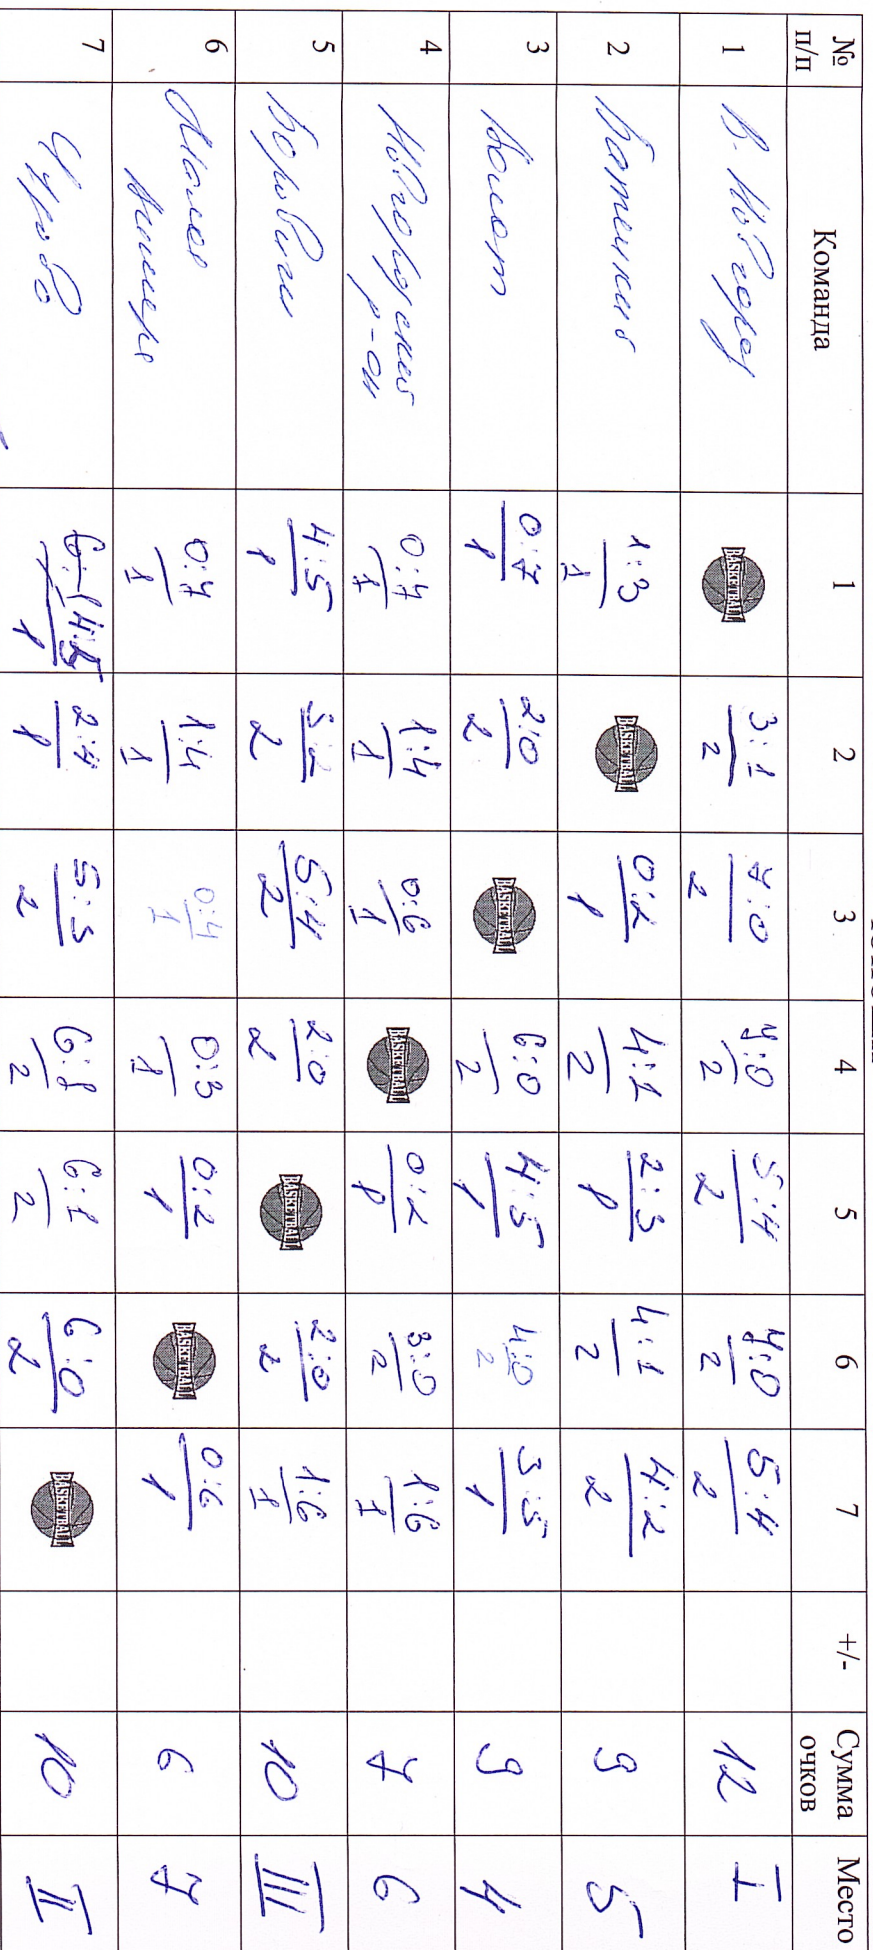 № п/п Команда 1 2 3 4 5 6 7 +/- Сумма очков Место
1 В. Новгород BASKETBALL 3:1 2 7:0 2 7:0 2 5:4 2 7:0 2 5:4 2 12 I
2 Батецкий 1:3 1 BASKETBALL 0:2 1 4:1 2 2:3 1 4:1 2 4:2 2 9 5
3 Волот 0:7 1 2:0 2 BASKETBALL 6:0 2 4:5 1 4:0 2 3:5 1 9 4
4 Новгородский р-он 0:7 1 1:4 1 0:6 1 BASKETBALL 0:2 1 3:0 2 1:6 1 7 6
5 Боровичи 4:5 1 3:2 2 5:4 2 2:0 2 BASKETBALL 2:0 2 1:6 1 10 III
6 Малая Вишера 0:7 1 1:4 1 0:4 1 0:3 1 0:2 1 BASKETBALL 0:6 1 6 7
7 Чудово 4:5 1 2:4 1 5:3 2 6:1 2 6:1 2 6:0 2 BASKETBALL 10 II